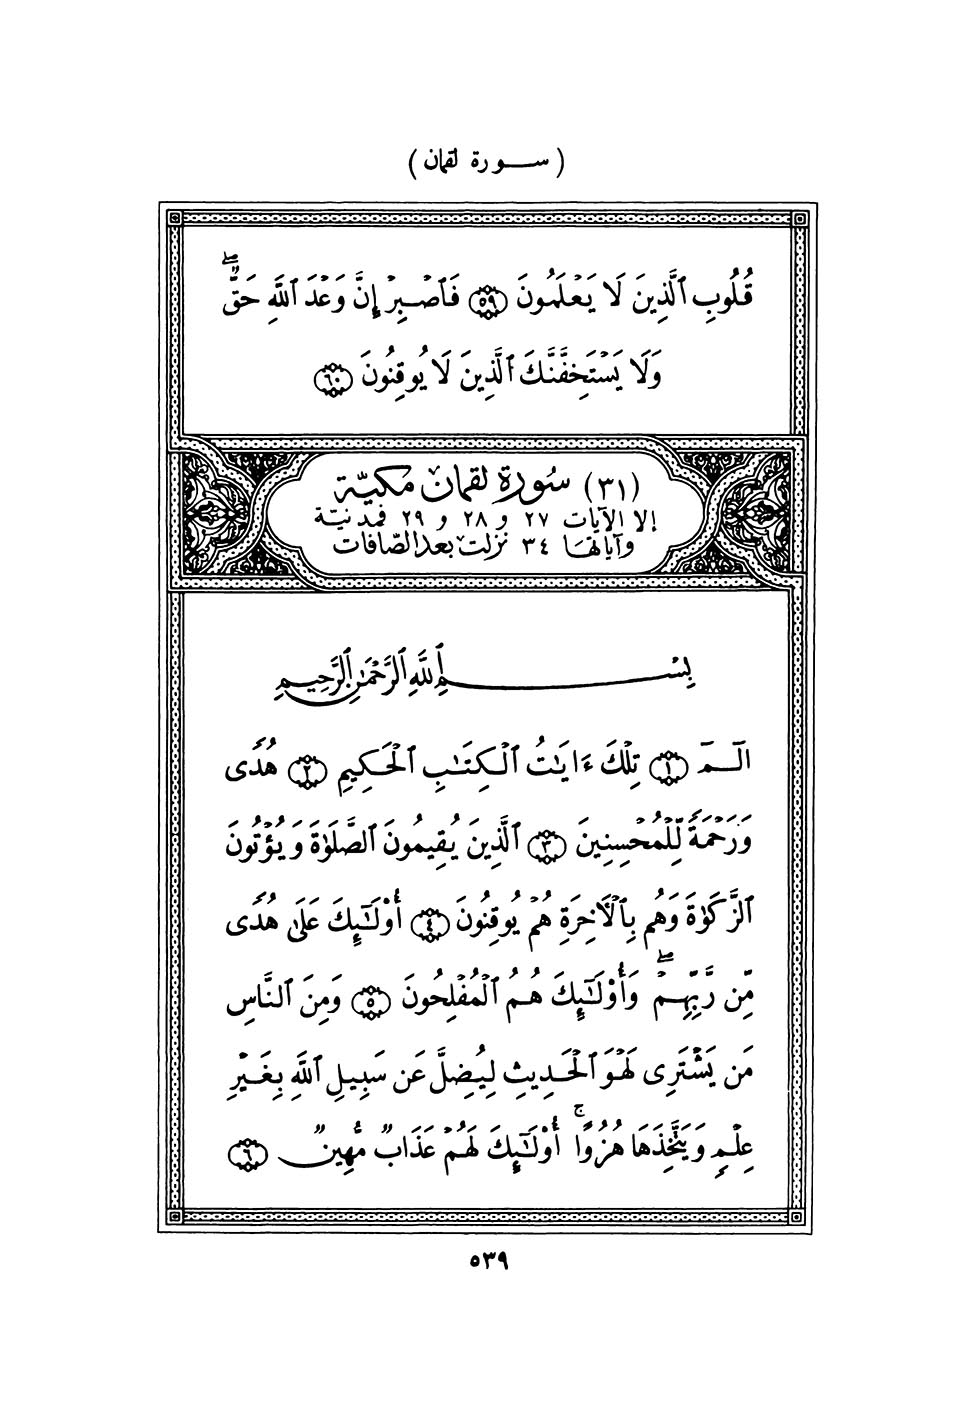 ( ســورة لقمان )
قُلُوبِ ٱلَّذِينَ لَا يَعْلَمُونَ ﴿٥٩﴾ فَٱصْبِرْ إِنَّ وَعْدَ ٱللَّهِ حَقٌّۖ
وَلَا يَسْتَخِفَّنَّكَ ٱلَّذِينَ لَا يُوقِنُونَ ﴿٦٠﴾
(٣١) سُورة لقمان مكيّة
إلا الآيات ٢٧ و ٢٨ و ٢٩ فمدنيّة
وآياتها ٣٤ نزلت بعد الصّافات
بِسْــمِ ٱللَّهِ ٱلرَّحْمَٰنِ ٱلرَّحِيمِ
الٓــمٓ ﴿١﴾ تِلْكَ ءَايَٰتُ ٱلْكِتَٰبِ ٱلْحَكِيمِ ﴿٢﴾ هُدًى
وَرَحْمَةً لِّلْمُحْسِنِينَ ﴿٣﴾ ٱلَّذِينَ يُقِيمُونَ ٱلصَّلَوٰةَ وَيُؤْتُونَ
ٱلزَّكَوٰةَ وَهُم بِٱلْأَخِرَةِ هُمْ يُوقِنُونَ ﴿٤﴾ أُوْلَٰٓئِكَ عَلَىٰ هُدًى
مِّن رَّبِّهِمْۖ وَأُوْلَٰٓئِكَ هُمُ ٱلْمُفْلِحُونَ ﴿٥﴾ وَمِنَ ٱلنَّاسِ
مَن يَشْتَرِى لَهْوَ ٱلْحَدِيثِ لِيُضِلَّ عَن سَبِيلِ ٱللَّهِ بِغَيْرِ
عِلْمٍ وَيَتَّخِذَهَا هُزُوًاۚ أُوْلَٰٓئِكَ لَهُمْ عَذَابٌ مُّهِينٌ ﴿٦﴾
٥٣٩